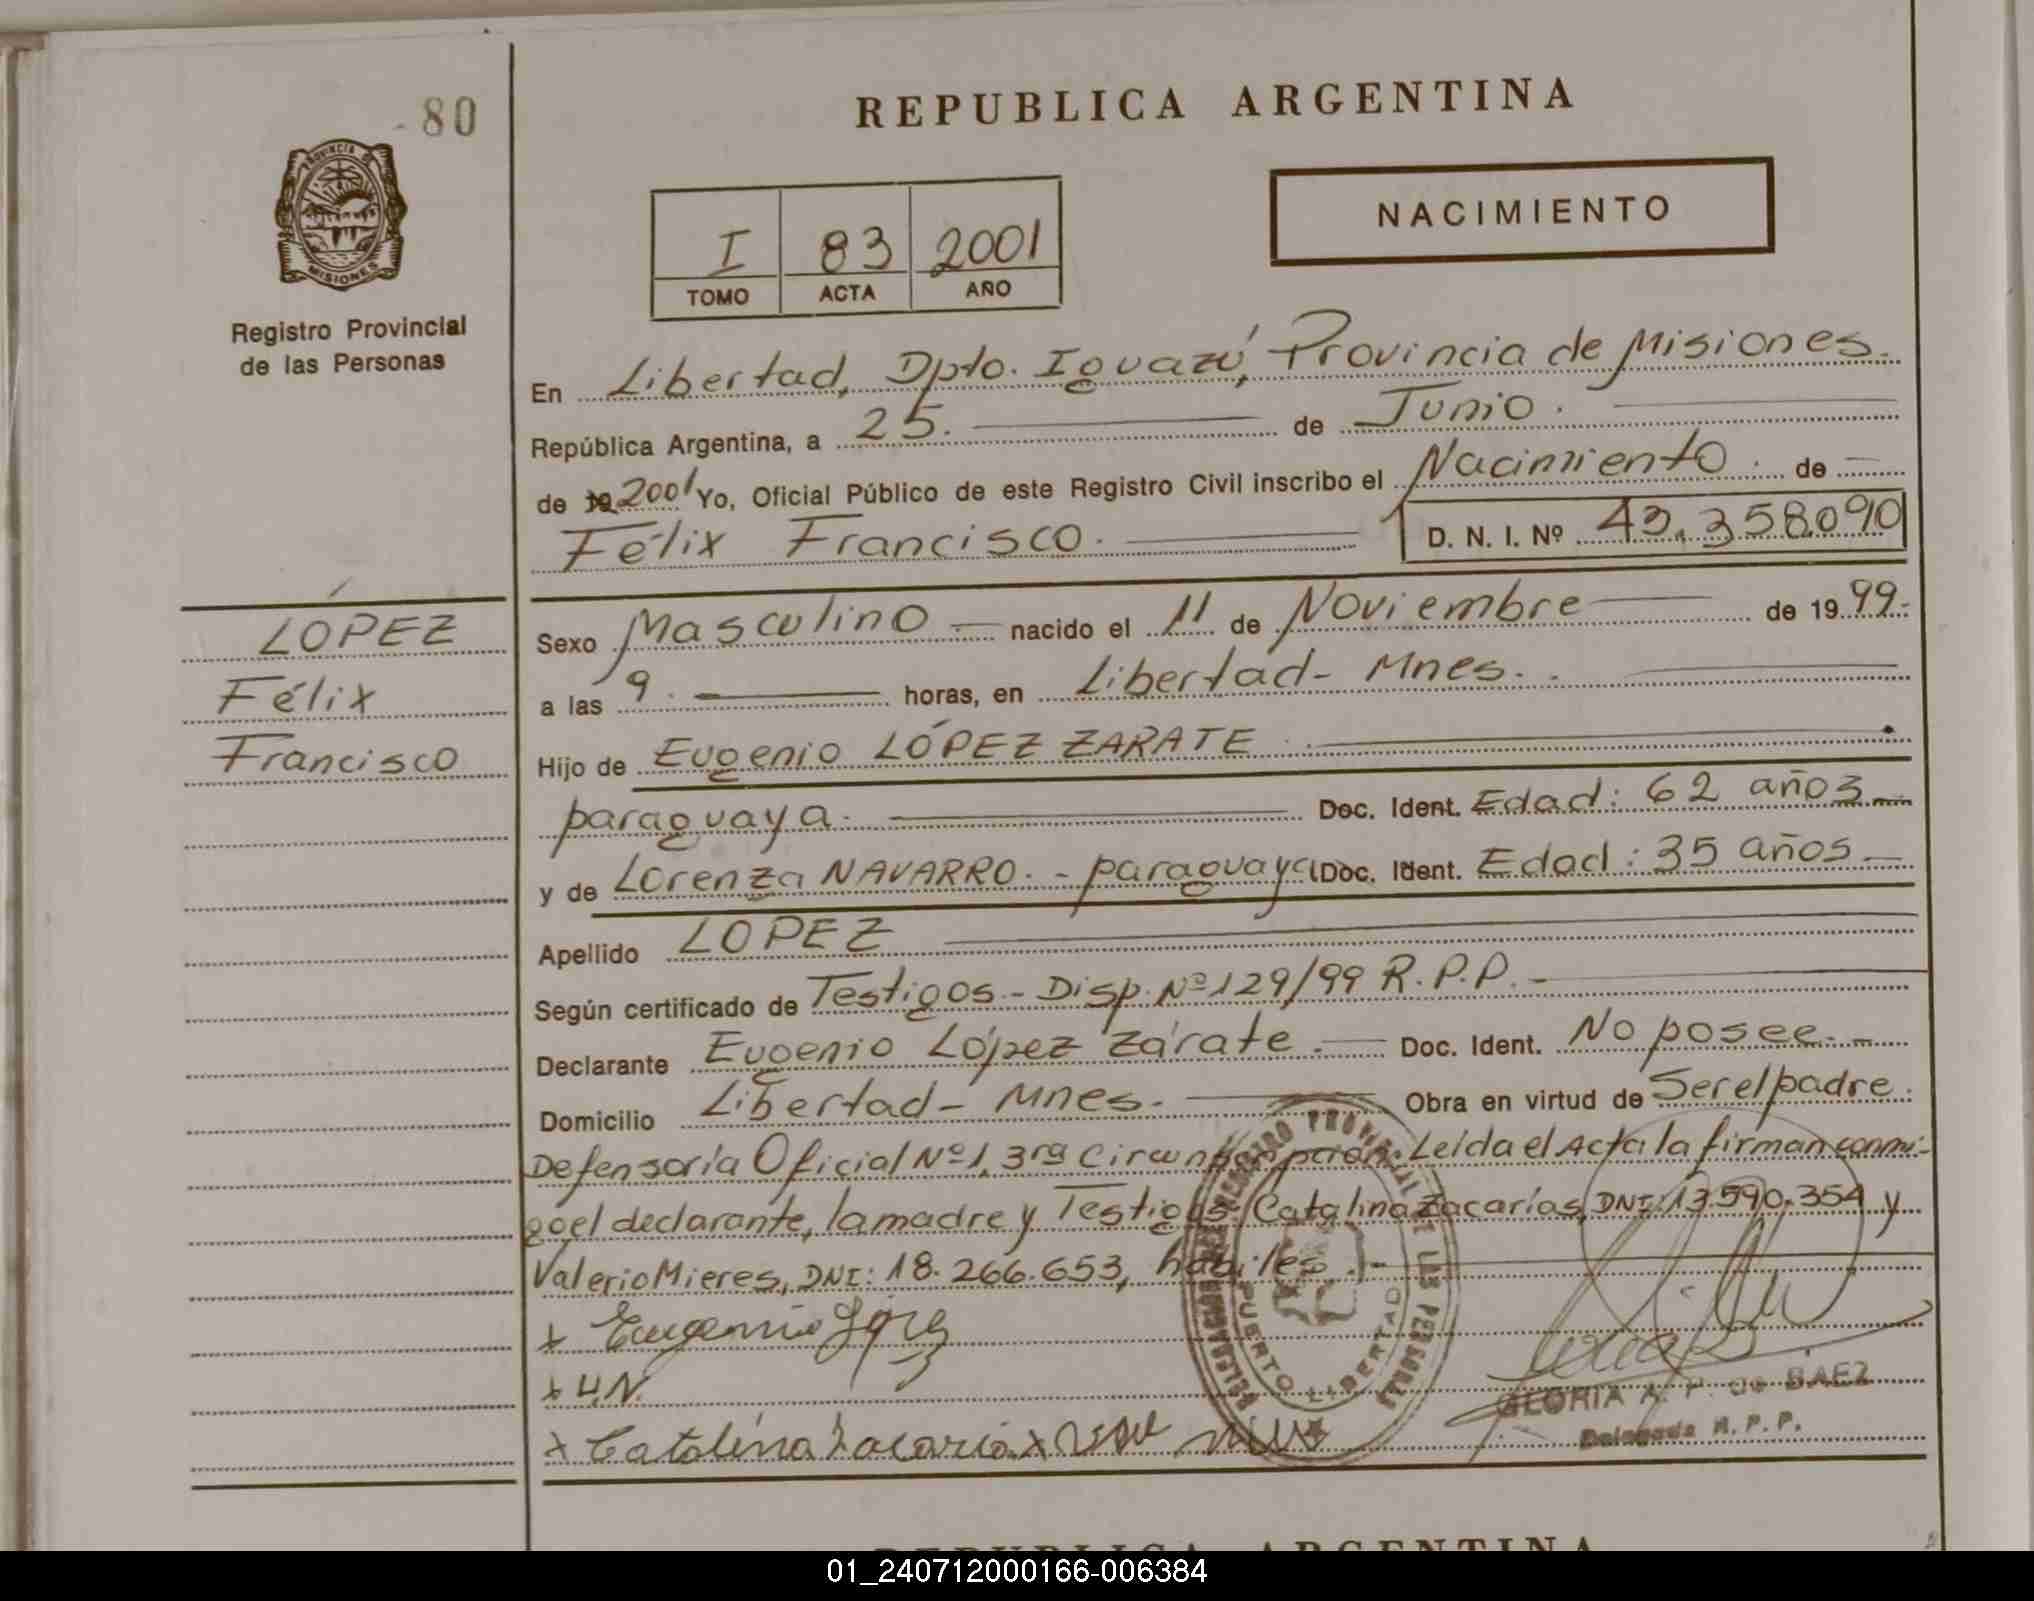 80
REPUBLICA ARGENTINA
PROVINCIA DE
MISIONES
Registro Provincial
de las Personas
I 83 2001
TOMO ACTA AÑO
NACIMIENTO
En Libertad, Dpto. Iguazú, Provincia de Misiones.
República Argentina, a 25. de Junio.
de 19 2001 Yo, Oficial Público de este Registro Civil inscribo el Nacimiento. de
Félix Francisco. D. N. I. Nº 43.358.090
LÓPEZ
Félix
Francisco
Sexo Masculino nacido el 11 de Noviembre de 1999.
a las 9. horas, en Libertad - Mnes.
Hijo de Eugenio LÓPEZ ZARATE
paraguaya. Doc. Ident. Edad: 62 años
y de Lorenza NAVARRO. - paraguaya Doc. Ident. Edad: 35 años
Apellido LOPEZ
Según certificado de Testigos - Disp. Nº 129/99 R.P.P. -
Declarante Eugenio López Zárate. Doc. Ident. No posee. -
Domicilio Libertad - Mnes. Obra en virtud de Ser el padre.
Defensoría Oficial Nº 1, 3ra Circunscripción. Leída el Acta la firman conmi-
go el declarante, la madre y Testigos: Catalina Zacarías, DNI: 13.590.354 y
Valerio Mieres, DNI: 18.266.653, hábiles. -
x Eugenio López
x L.N.
x Catalina Zacaria x
REGISTRO PROVINCIAL DE LAS PERSONAS
PUERTO LIBERTAD
GLORIA A. P. de BAEZ
Delegada R. P. P.
REPUBLICA ARGENTINA
01_240712000166-006384